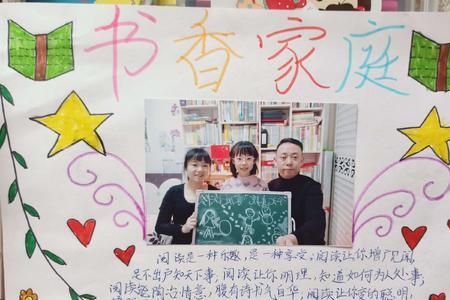 书香家庭
阅读是一种乐趣,是一种享受,阅读让你增广见闻
足不出户知天下事,阅读让你明理,知道如何为人处事,
阅读能陶冶情意,腹有诗书气自华,阅读让你变的聪明